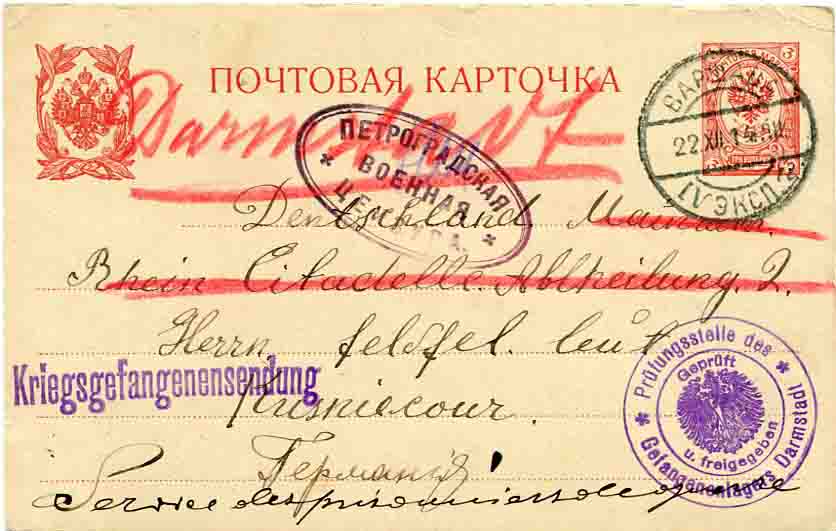 ПОЧТОВАЯ КАРТОЧКА
Darmstadt
3
3 3
ПЕТРОГРАДСКАЯ
ВОЕННАЯ
ЦЕНЗУРА.
22 XII 14
ЭКСП.
Deutschland. Mainz
Rhein Citadelle. Abtheilung. 2.
Herrn feldfel. leut
Kusniecour.
Германія
Kriegsgefangenensendung
Prüfungsstelle des
Gefangenenlagers Darmstadt
Geprüft
u. freigegeben
Service des prisonniers de guerre